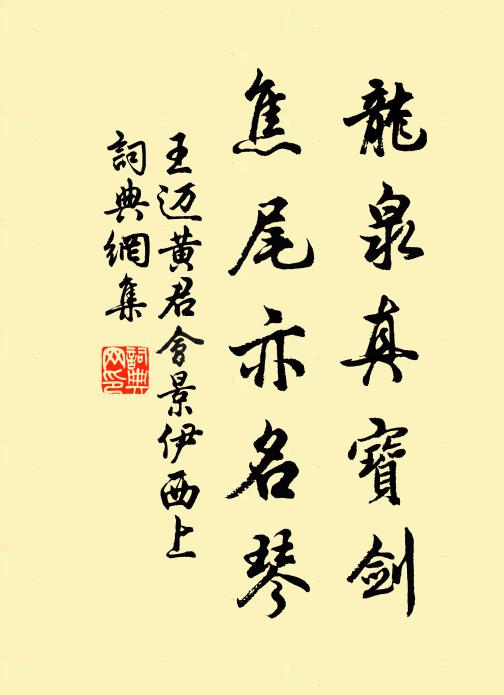 龍泉真寶劍
焦尾亦名琴
王迈黄君會景伊西上
詞典網集
詞典
网印